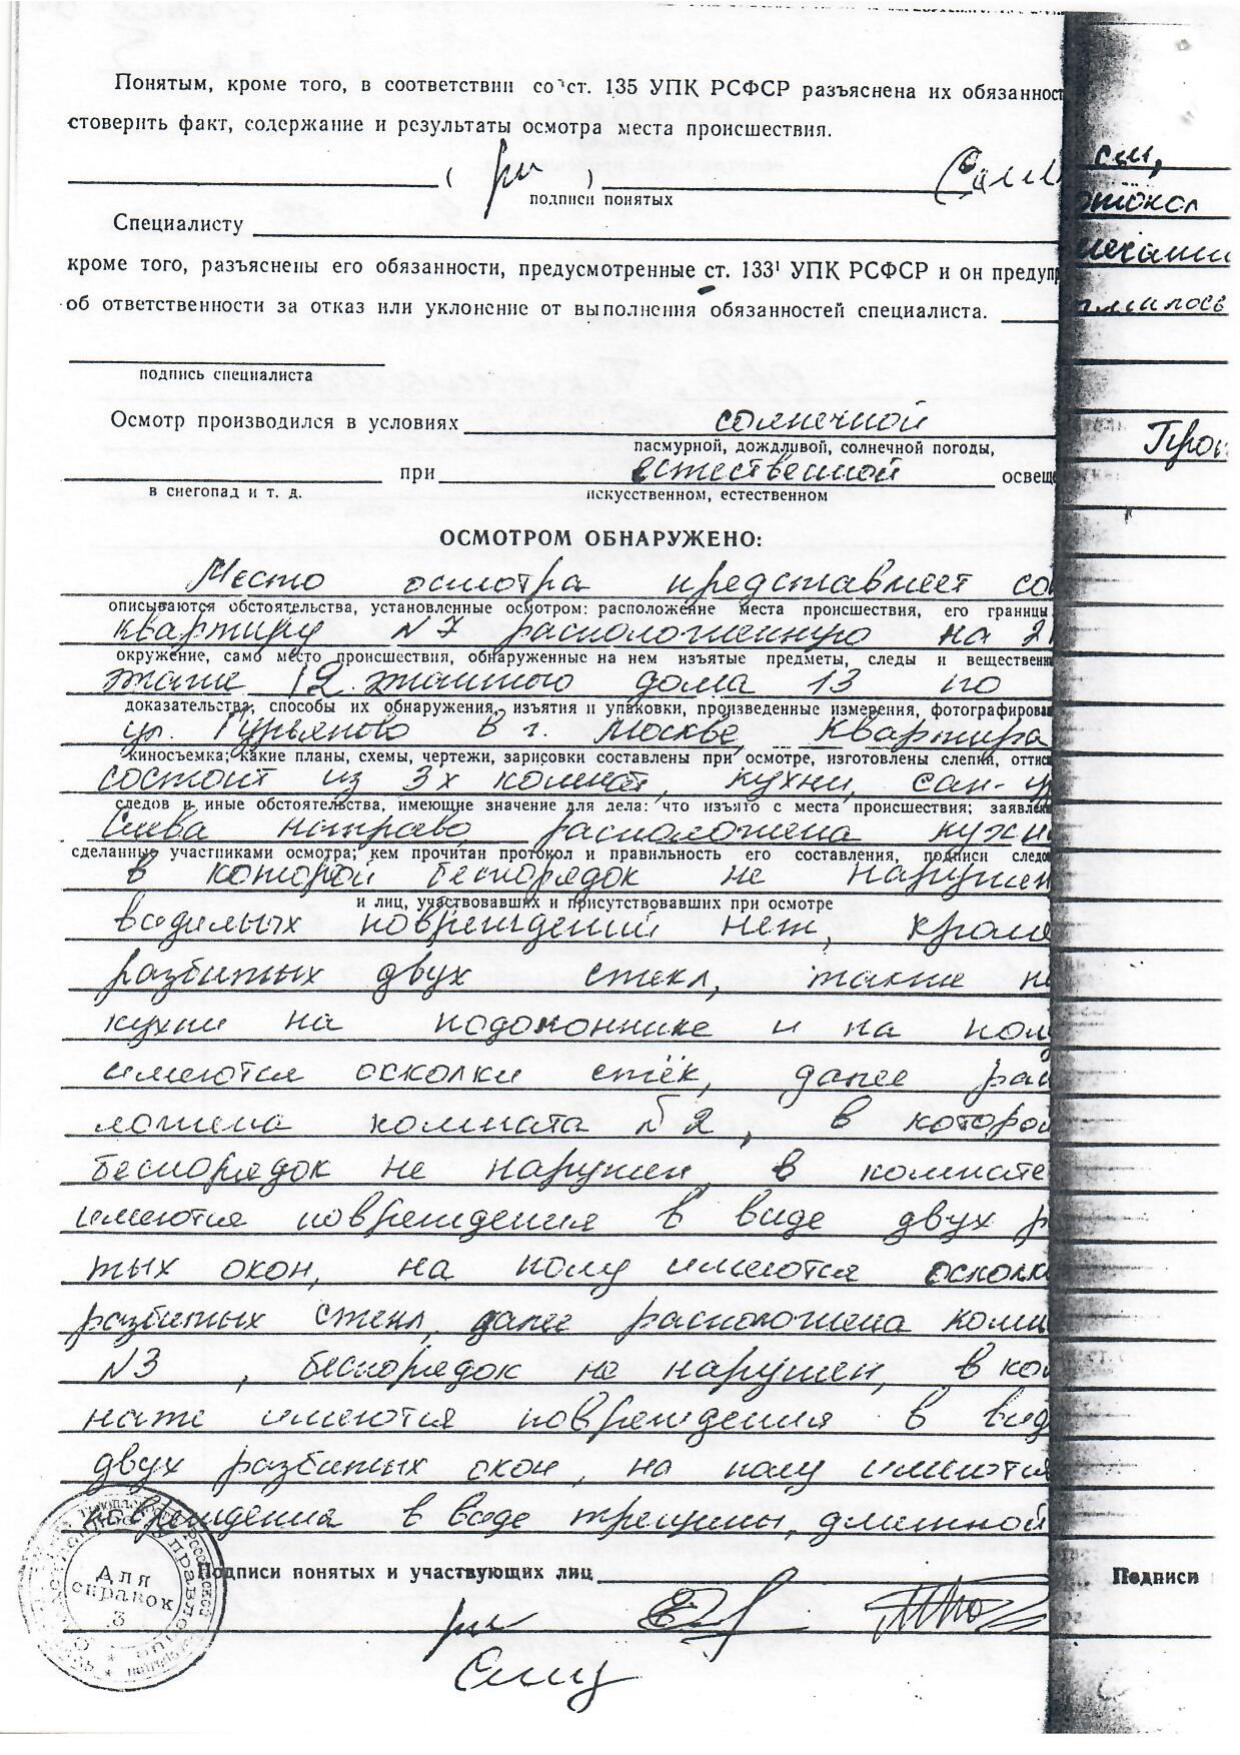 Понятым, кроме того, в соответствии со ст. 135 УПК РСФСР разъяснена их обязанност
стоверить факт, содержание и результаты осмотра места происшествия.
подписи понятых
Специалисту
кроме того, разъяснены его обязанности, предусмотренные ст. 133¹ УПК РСФСР и он предупр
об ответственности за отказ или уклонение от выполнения обязанностей специалиста.
подпись специалиста
Осмотр производился в условиях солнечной
пасмурной, дождливой, солнечной погоды,
при естественной освещ
в снегопад и т. д. искусственном, естественном
ОСМОТРОМ ОБНАРУЖЕНО:
Место осмотра представляет со
описываются обстоятельства, установленные осмотром: расположение места происшествия, его границы
квартиру №7 расположенную на 2
окружение, само место происшествия, обнаруженные на нем изъятые предметы, следы и вещественн
этаже 12 этажного дома 13 по
доказательства, способы их обнаружения, изъятия и упаковки, произведенные измерения, фотографирова
ул. Гурьяново в г. Москве, Квартира
киносъемка; какие планы, схемы, чертежи, зарисовки составлены при осмотре, изготовлены слепки, оттис
состоит из 3х комнат, кухни, сан-у
следов и иные обстоятельства, имеющие значение для дела: что изъято с места происшествия; заявлен
Слева направо, расположена кухн
сделанные участниками осмотра; кем прочитан протокол и правильность его составления, подписи следо
в которой беспорядок не нарушен
и лиц, участвовавших и присутствовавших при осмотре
видимых повреждений нет, кроме
разбитых двух стекл, также н
кухни на подоконнике и на пол
имеются осколки стёк, далее рас
ложена комната №2, в которой
беспорядок не нарушен, в комнате
имеются повреждения в виде двух р
тых окон, на полу имеются осколк
разбитых стекл, далее расположена комн
№3, беспорядок не нарушен, в ком
нате имеются повреждения в вид
двух разбитых окон, на полу имеются
повреждения в виде трещины, длинной
Подписи понятых и участвующих лиц
Для
справок
3
си,
отокол
Прои
Подписи